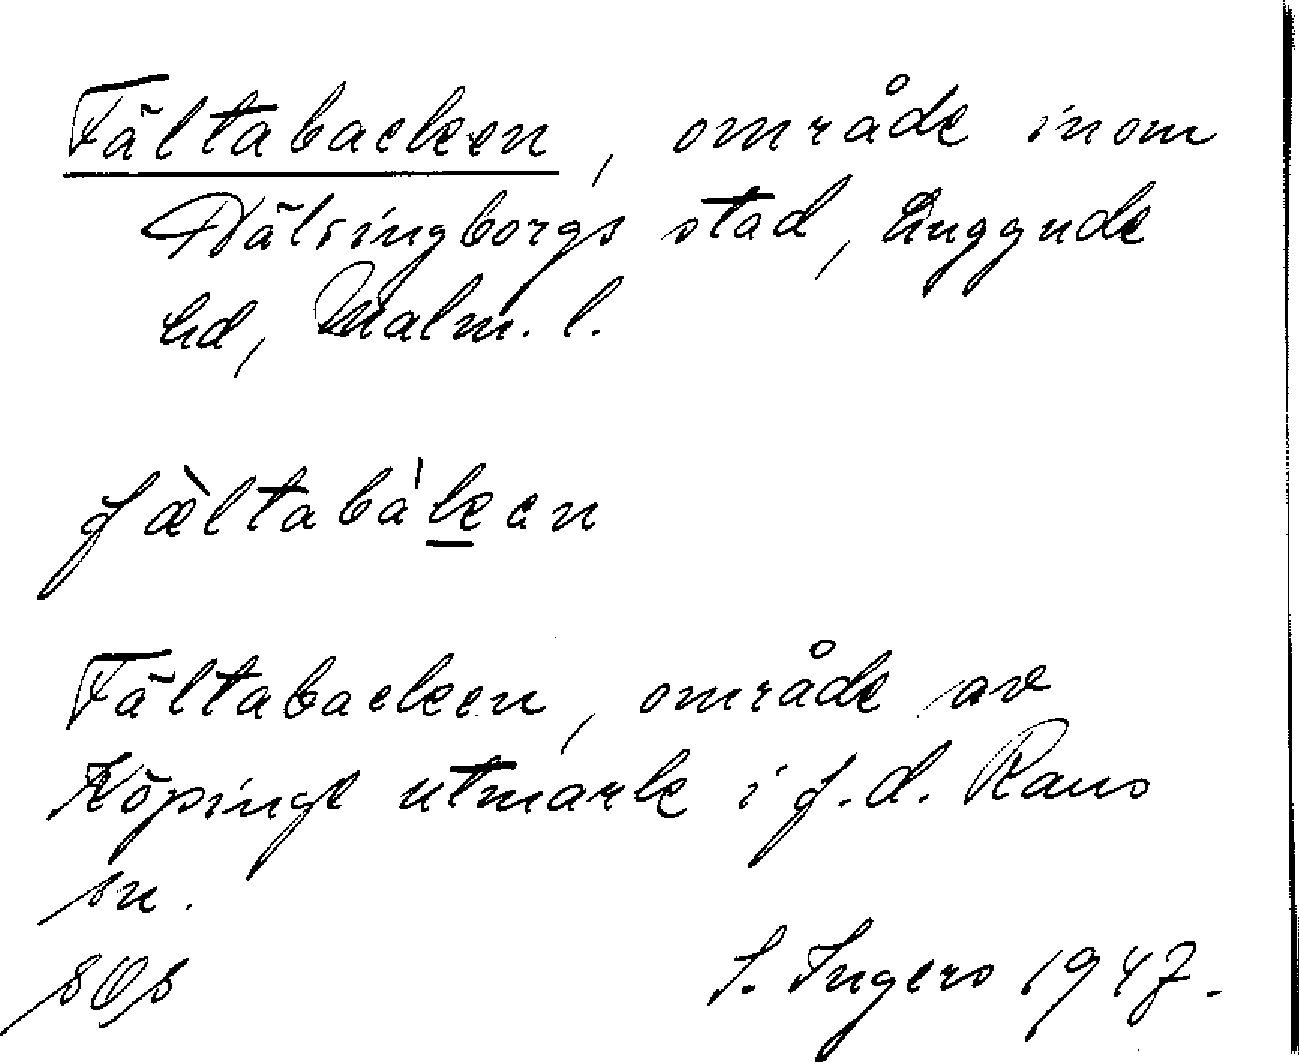 Fältabacken, område inom
Hälsingborgs stad, Luggude
hd, Malm. l.
fæ̀ltabáken
Fältabacken, område av
Köpinge utmark i f.d. Raus
sn.
I. Ingers 1947.